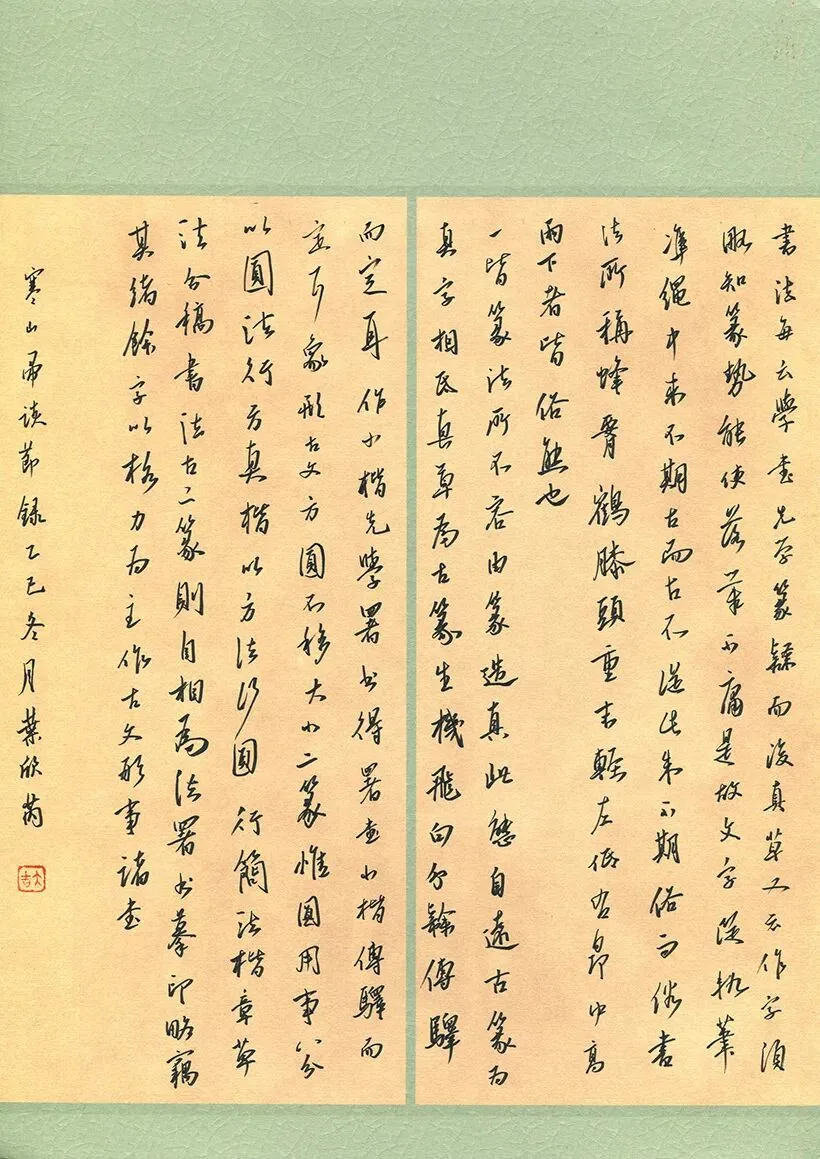 書法每云學書先學篆隸而後真草又云作字須
略知篆勢能使落筆不庸是故文字從執筆
準繩中来不期古而古不從此来不期俗而俗書
法所稱蜂腰鶴膝頭重末輕左低右昂中高
兩下者皆俗態也
一皆篆法所不容由篆造真此態自遠古篆為
真字相氐真草為古篆生機飛白分隸傳驛
而定耳作小楷先學署書得署書小楷傳驛而
定耳象形古文方圓不移大小二篆惟圓用事八分
以圓法行方真楷以方法行圓行簡法楷章草
法分稿書法古二篆則自相為法署書摹印略竊
其緒餘字以格力為主作古文形事諸書
寒山帚談節錄乙巳冬月葉欣
大吉